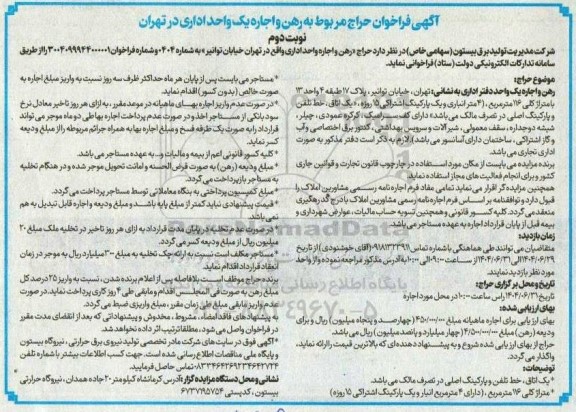 آگهی فراخوان حراج مربوط به رهن و اجاره یک واحد اداری در تهران
نوبت دوم
شرکت مدیریت تولید برق بیستون (سهامی خاص) در نظر دارد حراج «رهن و اجاره واحد اداری واقع در تهران خیابان توانیر» به شماره ۰۴-۰۴ و شماره فراخوان را از طریق
سامانه تدارکات الکترونیکی دولت (ستاد) فراخوانی نماید.
موضوع حراج:
رهن و اجاره یک واحد دفتر اداری به نشانی: تهران، خیابان توانیر، پلاک ۱۷ طبقه ۴ واحد ۱۳
با متراژ کلی ۱۱۶ مترمربع، (۴ متر انباری و یک پارکینگ اشتراکی ۱۵ روزه)، *یک اتاق، خط تلفن
و پارکینگ اصلی در تصرف مالک می باشد» دارای کف سرامیک، کرکره عمودی، چیلر،
شیشه دوجداره، سقف معمولی، شیرآلات و سرویس بهداشتی، کنتور برق اختصاصی و آب
و گاز اشتراکی، ساختمان دارای آسانسور می باشد)، لازم به ذکر است دفتر مذکور به صورت
اداری تجاری می باشد.
برنده مزایده می بایست از مکان مورد استفاده در چارچوب قانون تجارت و قوانین جاری
کشور و برای انجام فعالیت های مجاز استفاده نماید.
همچنین مزایده گر اقرار می نماید تمامی مفاد فرم اجاره نامه رسمی مشاورین املاک را
قبول دارد و توافقنامه بر اساس فرم اجاره نامه رسمی مشاورین املاک با درج کد رهگیری
منعقد می گردد. کلیه کسور قانونی و همچنین تسویه حساب مالیات، عوارض شهرداری و
بیمه قبل از پایان قرارداد اجاره به عهده مستاجر می باشد.
زمان بازدید:
متقاضیان می توانند طی هماهنگی با شماره تماس (آقای خوشنودی) از تاریخ
۱۴۰۴/۰۶/۲۹ الی ۱۴۰۴/۰۶/۳۱ از ساعت ۰۹:۰۰ الی ۱۰:۰۰ به آدرس مذکور مراجعه نموده و از واحد
مورد نظر بازدید نمایند.
تاریخ و محل برگزاری حراج:
تاریخ ۱۴۰۴/۰۶/۳۱ راس ساعت ۱۰:۰۰ در محل مورد اجاره
بهای ارزیابی شده:
بهای ارزیابی برای اجاره ماهیانه مبلغ ۴۵۰/۰۰۰/۰۰۰ (چهارصد و پنجاه میلیون) ریال و برای
ودیعه (رهن) مبلغ ۴/۵۰۰/۰۰۰/۰۰۰ (چهار میلیارد و پانصد میلیون) ریال می باشد.
حراج از بهای ارزیابی شده شروع و به پیشنهاد دهنده ای که بالاترین قیمت را ارائه نماید،
واگذار می گردد.
توضیحات:
* یک اتاق، خط تلفن و پارکینگ اصلی در تصرف مالک می باشد.
* متراژ کلی ۱۱۶ مترمربع، (دارای ۴ مترمربع انبار و یک پارکینگ اشتراکی ۱۵ روزه)
* مستاجر می بایست پس از پایان هر ماه حداکثر ظرف سه روز نسبت به واریز مبلغ اجاره به
صورت خالص (بدون کسور) اقدام نماید.
* در صورت عدم واریز اجاره بهای ماهیانه در موعد مقرر، به ازای هر روز تاخیر معادل نرخ
سود بانکی از مستاجر اخذ و در صورت عدم پرداخت اجاره بهای دو ماه موجر می تواند
قرارداد را به صورت یک طرفه فسخ و مبلغ اجاره بها به همراه جرائم مربوطه را از مبلغ ودیعه
کسر نماید.
* کلیه کسور قانونی اعم از بیمه و مالیات و... به عهده مستاجر می باشد.
* مبلغ ودیعه (رهن) به صورت قرض الحسنه و امانت تحویل موجر شده و در هنگام تخلیه
به مستاجر بازپرداخت می گردد.
* مبلغ کمیسیون پرداختی به بنگاه معاملاتی توسط مستاجر پرداخت می گردد.
* قیمت پیشنهادی نباید کمتر از مبلغ پایه باشد و مبلغ ودیعه و اجاره قابل تبدیل به هم
نمی باشد.
* در صورت عدم تخلیه در پایان مدت قرارداد به ازای هر روز تاخیر در تخلیه ملک مبلغ ۲۰
میلیون ریال از مبلغ ودیعه کسر می گردد.
* مستاجر مکلف است نسبت به ارائه چک تخلیه به مبلغ ۳۰۰ میلیارد ریال به موجر در زمان
انعقاد قرارداد اقدام نماید.
برنده حراج موظف است بلافاصله پس از اعلام برنده شدن، نسبت به واریز ۲۵ درصد کل
مبلغ رهن به صورت فی المجلس اقدام و مابقی طی ۴ روز کاری پرداخت نماید. در صورت
عدم واریز مابقی مبلغ طی زمان مقرر، مبلغ واریزی ضبط می گردد.
به پیشنهادهای فاقد امضاء، مشروط، مخدوش و پیشنهاداتی که بعد از انقضای مدت مقرر
در فراخوان واصل می شود، مطلقا ترتیب اثر داده نخواهد شد.
* آگهی فوق در سایت های شرکت مادر تخصصی تولید نیروی برق حرارتی، نیروگاه بیستون
و پایگاه ملی مناقصات اطلاع رسانی شده است. جهت کسب اطلاعات بیشتر با شماره تلفن
تماس حاصل فرمایید.
نشانی و محل دستگاه مزایده گزار: آدرس کرمانشاه کیلومتر ۲۰ جاده همدان، نیروگاه حرارتی
بیستون، کدپستی ۶۷۳۷۹۵۷۵۴